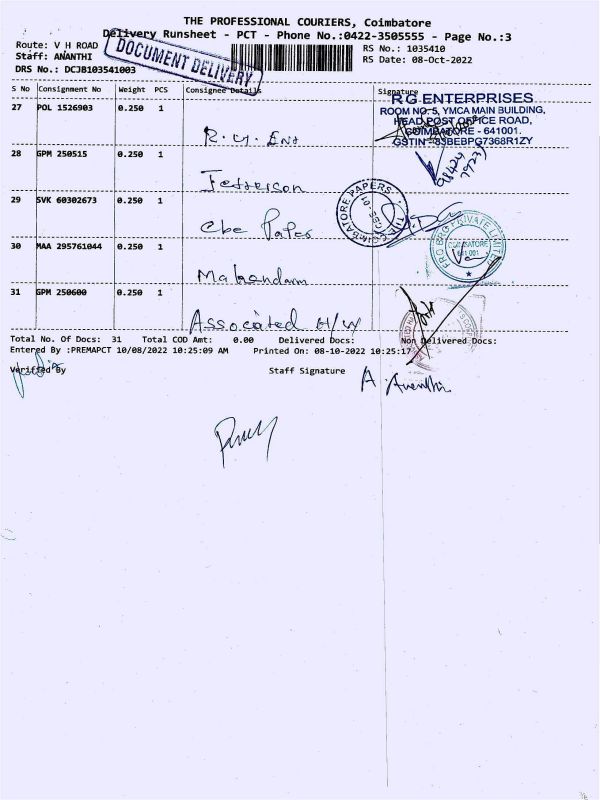 THE PROFESSIONAL COURIERS, Coimbatore
Delivery Runsheet - PCT - Phone No.:0422-3505555 - Page No.:3
Route: V H ROAD
RS No.: 1035410
Staff: ANANTHI
RS Date: 08-Oct-2022
DRS No.: DCJB103541003
DOCUMENT DELIVERY
S No Consignment No Weight PCS Consignee Details Signature
27 POL 1526903 0.250 1
R.G. Ent
R G ENTERPRISES
ROOM NO. 5, YMCA MAIN BUILDING,
HEAD POST OFFICE ROAD,
COIMBATORE - 641001.
GSTIN - 33BEBPG7368R1ZY
28 GPM 250515 0.250 1
Jefferson
29 SVK 60302673 0.250 1
Cbe Paper
THE COIMBATORE PAPERS
30 MAA 295761044 0.250 1
PRIVATE LIMITED
COIMBATORE
641 001
31 GPM 250600 0.250 1
Associated H/W
Total No. Of Docs: 31 Total COD Amt: 0.00 Delivered Docs: Non Delivered Docs:
Entered By :PREMAPCT 10/08/2022 10:25:09 AM Printed On: 08-10-2022 10:25:17
Verified By Staff Signature
A. Ananthi